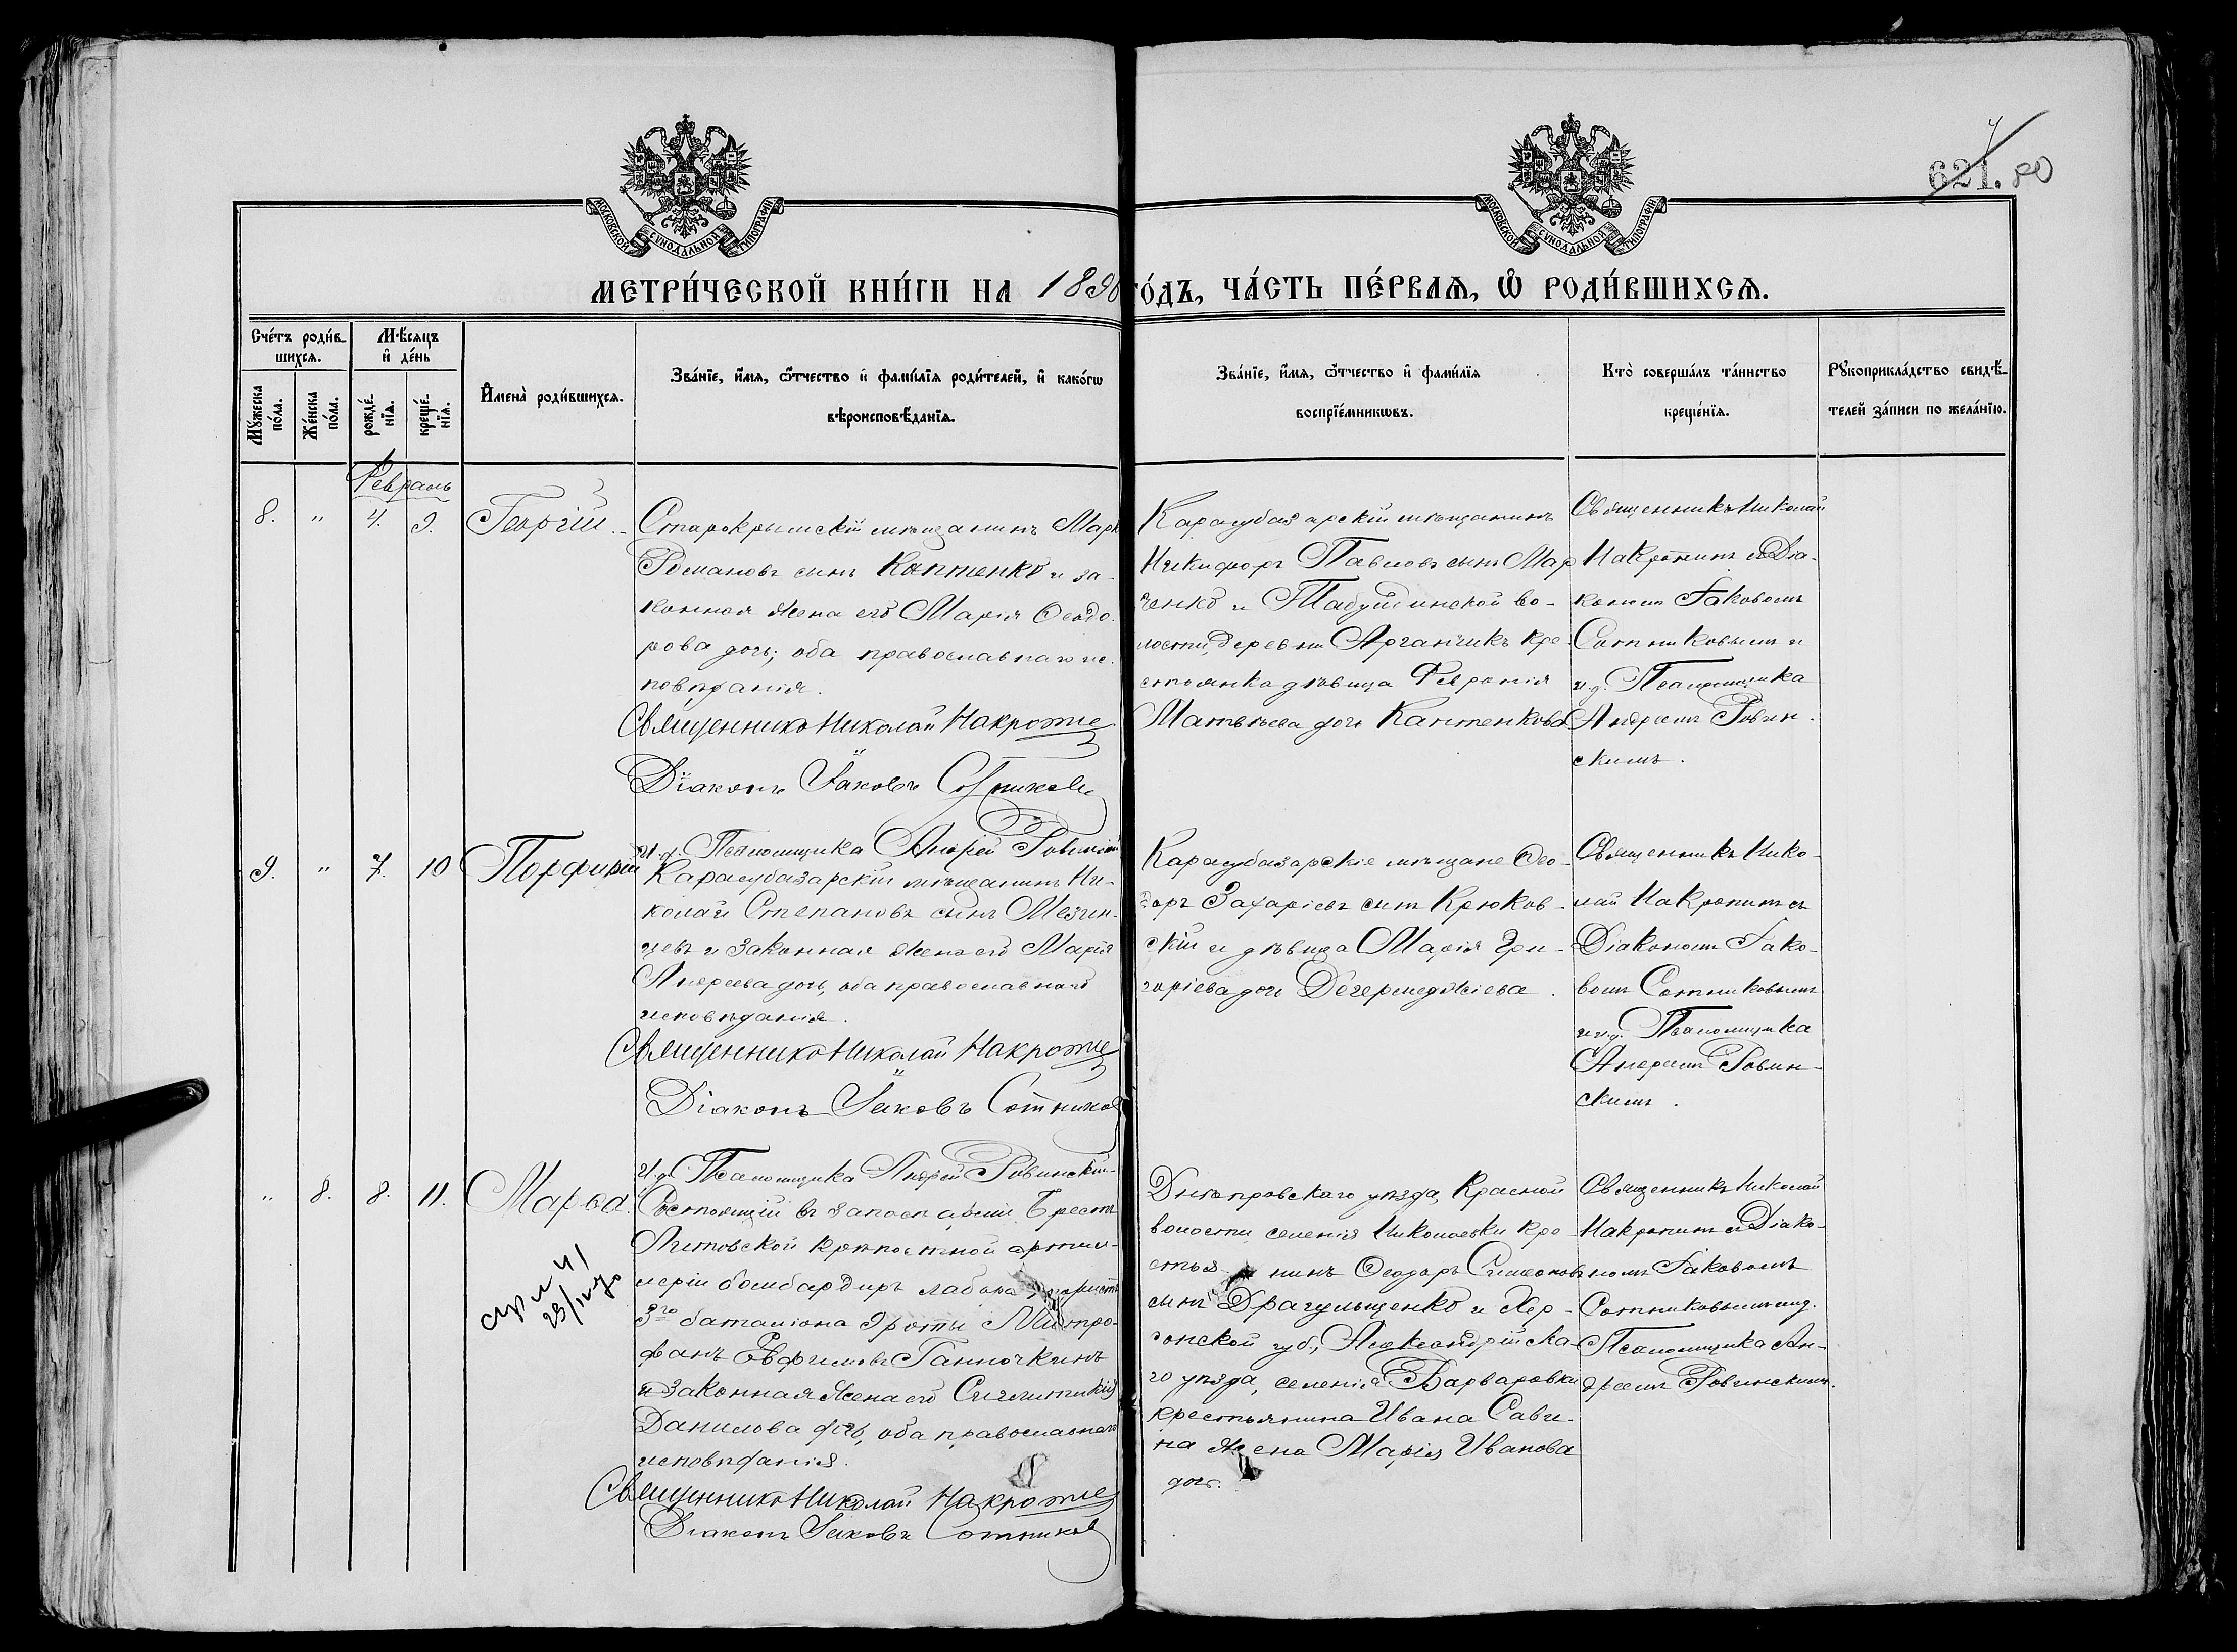 621. 80
МОСКОВСКОЙ СУНОДАЛЬНОЙ ТИПОГРАФІИ
МОСКОВСКОЙ СУНОДАЛЬНОЙ ТИПОГРАФІИ
МЕТРИ́ЧЕСКОЙ КНИ́ГИ НА 1890 ГО́ДЪ, ЧА́СТЬ ПЕ́РВАѦ, Ѽ РОДИ́ВШИХСѦ.
Сче́тъ роди́в-
шихсѧ.
Мꙋжеска
по́ла.
Же́нска
по́ла.
Мѣ́сѧцъ
и҆ де́нь
рожде́-
нїѧ.
креще́-
нїѧ.
И҆мена̀ роди́вшихсѧ.
Зва́нїе, и҆́мѧ, ѻ҆́тчество и҆ фами́лїѧ роди́телей, и҆ како́гѡ
вѣроисповѣ́данїѧ.
Зва́нїе, и҆́мѧ, ѻ҆́тчество и҆ фами́лїѧ
воспрїе́мникѡвъ.
Кто̀ соверша́лъ та́инство
креще́нїѧ.
Рꙋкоприкла́дство свидѣ́-
телей за́писи по жела́нїю.
Февраль
8. " 4. 9. Георгій.
Старокрымскій мѣщанинъ Марк
Романовъ сынъ Коптенко и за-
конная жена его Марія Ѳеодо-
рова дочь; оба православнаго ис-
повѣданія.
Священникъ Николай Накропи
Діаконъ Іаковъ Сотников
И.д. Псаломщика Андрей Ровинскій
Карасубазарскій мѣщанинъ
Никифоръ Павловъ сынъ Мар
ченко и Табулдинской во-
лости, деревни Арганчикъ кре-
стьянка дѣвица Февронія
Матвѣева дочь Коптенкова
Священникъ Николай
Накропинъ съ Діа-
кономъ Іаковомъ
Сотниковымъ и
и.д. Псаломщика
Андреемъ Ровин-
скимъ.
9. " 7. 10 Порфирій
Карасубазарскій мѣщанинъ Ни-
колай Степановъ сынъ Мезин-
цевъ и законная жена его Марія
Андреева дочь, оба православнаго
исповѣданія.
Священникъ Николай Накропи
Діаконъ Іаковъ Сотников
И.д. Псаломщика Андрей Ровинскій
Карасубазарскіе мѣщане Ѳео-
доръ Захаріевъ сынъ Крюков-
скій и дѣвица Марія Гри-
горіева дочь Дегермеджіева.
Священникъ Нико-
лай Накропинъ съ
Діакономъ Іако-
вомъ Сотниковымъ
и и.д. Псаломщика
Андреемъ Ровин-
скимъ.
" 8. 8. 11. Марѳа.
Состоящій въ запасѣ арміи Брестъ
Литовской крѣпостной артил-
леріи бомбардиръ
3го баталіона 9 роты Митро-
фанъ Евфимовъ Ганночкинъ
и законная жена его Синклитикія
Данилова дочь, оба православнаго
исповѣданія.
Священникъ Николай Накропи
Діаконъ Іаковъ Сотников
Днѣпровскаго уѣзда, Красной
волости селенія Николаевки кре-
стьянинъ Ѳеодоръ Симеоновъ
сынъ Драгульщенко и Хер-
сонской губ., Александрійска-
го уѣзда, селенія Варваровки
крестьянина Ивана Сави-
на жена Марія Иванова
дочь.
Священникъ Николай
Накропинъ съ Діако-
номъ Іаковомъ
Сотниковымъ и и.д.
Псаломщика Ан-
дреемъ Ровинскимъ.